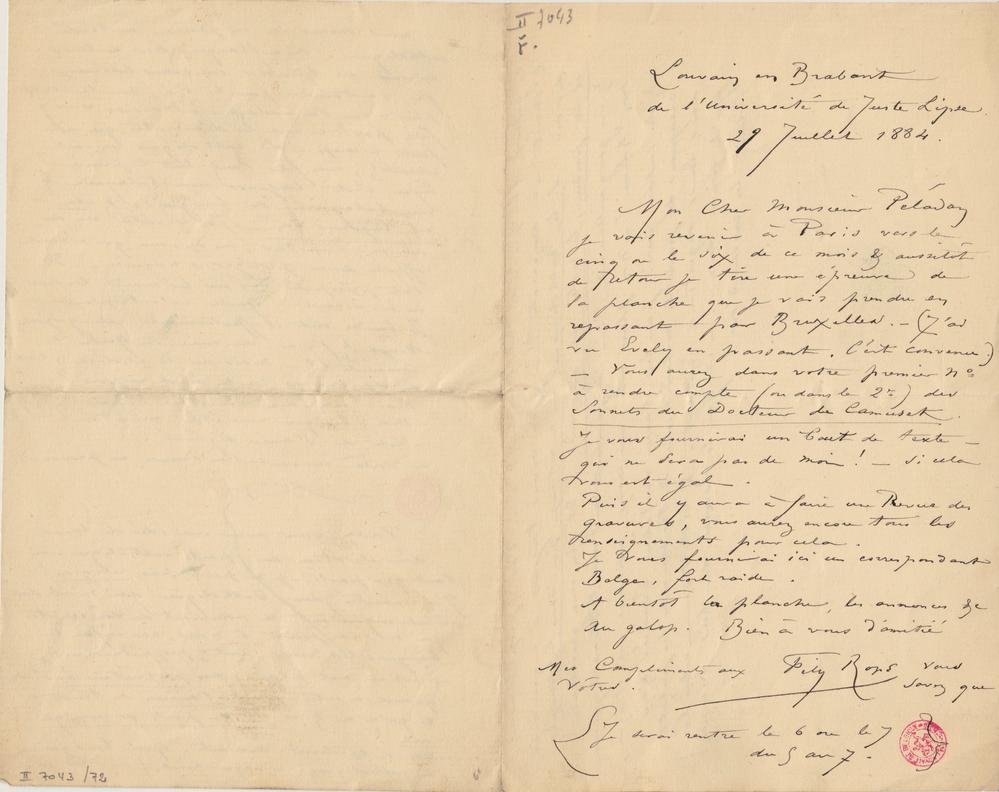 II 7043
F.
Louvain en Brabant
de l'Université de Juste Lipse.
29 Juillet 1884.
Mon Cher Monsieur Péladan
je vais revenir à Paris vers le
cinq ou le six de ce mois & aussitôt
de retour je tire une épreuve de
la planche que je vais prendre en
repassant par Bruxelles. – (J'ai
vu Evely en passant. C'est convenu)
– Vous aurez dans votre premier No
à rendre compte (ou dans le 2e) des
Sonnets du Docteur de Camuset.
Je vous fournirai un bout de texte –
qui ne sera pas de moi! – si cela
vous est égal.
Puis il y aura à faire une Revue des
gravures, vous aurez encore tous les
renseignements pour cela.
Je vous fournirai ici un correspondant
Belge, fort raide.
A bientôt la planche, les annonces &c
au galop. Bien à vous d'amitié
Mes Compliments aux Fély Rops vous
Vôtres. savez que
Je serai rentré le 6 ou le 7
du 5 au 7.
II 7043 /72